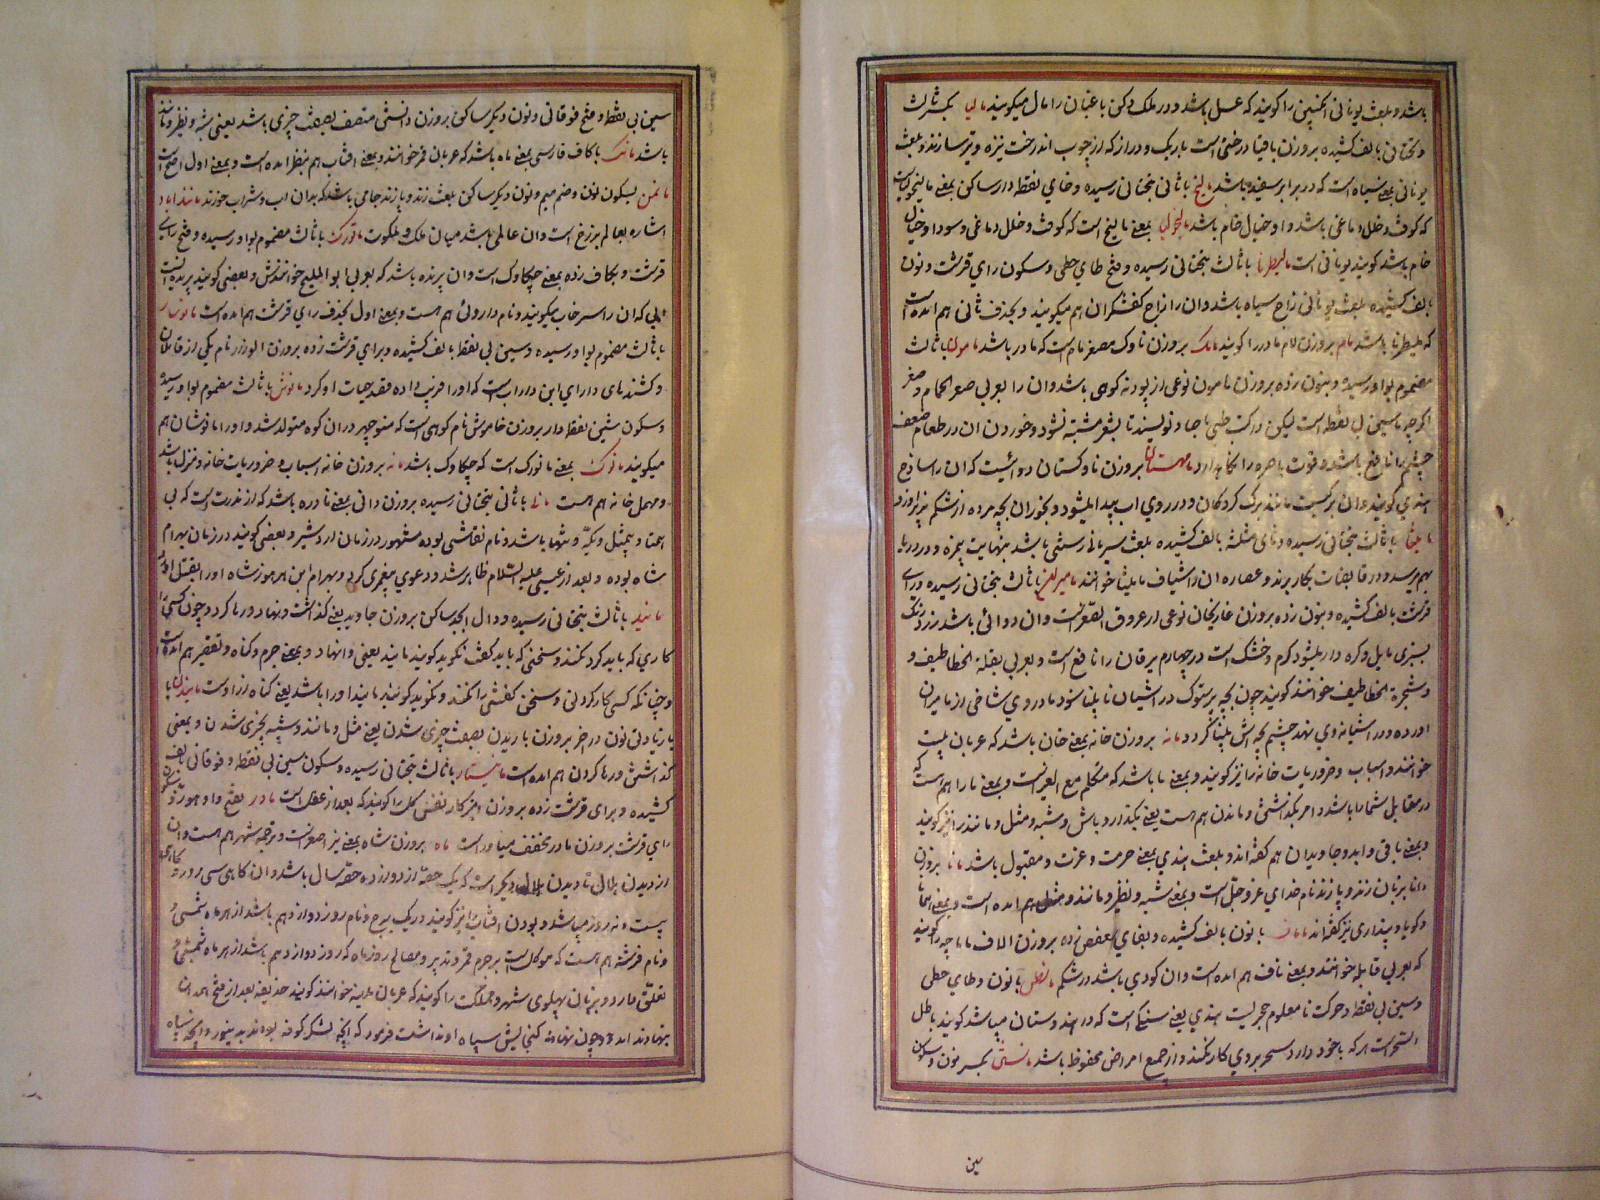 باشد و بلغت یونانی انجبین را کویند که عسل باشد و در ملک دکن باغبان را مال میکویند مالیا بکسر ثالث
و تحتانی بالف کشیده بروزن باقیا درختی است باریک و دراز که از چوب اندرخت نیزه و تیر سازند و بلغت
یونانی بمعنی سیاه است که در برابر سفید باشد مالیخ با ثانی بتحتانی رسیده و خای نقطه دار ساکن بمعنی مالیخولیاست
که کوفت و خلل دماغی باشد و او خیال خام باشد مالیخولیا بمعنی مالیخ است که کوفت و خلل دماغی و سودا و خیال
خام باشد کویند یونانی است مالیطرنا با ثالث بتحتانی رسیده و فتح طای حطی و سکون رای قرشت و نون
بالف کشیده بلغت یونانی زاج سیاه باشد و ان را زاج کفشکران هم میکویند و بحذف ثانی هم امده است
که ملیطرنا باشد مام بروزن لام مادر را کویند مامک بروزن ناوک مصغر مام است که مادر باشد با ثالث
مضموم بواو رسیده و بنون زده بروزن مامون نوعی از پودنه کوهی باشد و ان را بعربی صعتر الحمام و صغر
اکرچه با سین بی نقطه است لیکن در کتب طبی بصاد نویسند تا بشعیر مشتبه نشود و خوردن ان در طعام ضعف
چشم را نافع باشد و قوت باصره را نکاهدارد بروزن ناوکستان دوائیست که ان را ساذج
هندی کویند و ان برکیست مانند برک کردکان و در روی اب پیدا میشود و بخوران بچه مرده از شکم بزیر اورد
مامیثا با ثالث بتحتانی رسیده و ثای مثلثه بالف کشیده بلغت سریانی رستنی باشد بنهایت بیمزه و در دریا
بهم رسد و در قابضات بکار برند و عصاره ان را شیاف مامیثا خوانند مامیران با ثالث بتحتانی رسیده و رای
قرشت بالف کشیده و بنون زده بروزن غاریخان نوعی از عروق الصفر است و ان دوائی باشد زرد رنک
بسبزی مایل و کره دار میشود کرم و خشک است در چهارم یرقان را نافع است و بعربی بقلة الخطاطیف و
و شجرة الخطاطیف خوانند کویند چون بچه پرستوک در اشیان نابینا شود مادر وی شاخی از مامیران
اورده در اشیانه وی نهد چشم بچه اش بینا کردد مانه بروزن خانه بمعنی خان باشد که عربان بیت
خوانند و اسباب و ضروریات خانه را نیز کویند و بمعنی ما باشد که متکلم مع الغیر است و بمعنی ما را هم هست که
در مقابل شما را باشد و امر بکذاشتن و ماندن هم هست یعنی بکذار و باش و شبه و مثل و مانند را نیز کویند
و بمعنی باقی و ابد و جاویدان هم کفته اند و بلغت هندی بمعنی حرمت و عزت و مقبول باشد مانا بروزن
دانا بزبان زند و پازند نام خدای عز و جل است و بمعنی شبه و نظیر و مانند و مثل هم امده است و بمعنی همانا
و کویا و پنداری نیز کفته اند با نون بالف کشیده و بفای سعفص زده بروزن الاف ماماچه را کویند
که بعربی قابله خوانند و بمعنی ناف هم امده است و ان کودی باشد در شکم مانطس با نون و طای حطی
و سین بی نقطه و حرکت نامعلوم حجریست هندی یعنی سنکی است که در هندوستان میباشد کویند باطل
السحر است هر که با خود دارد سحر بر وی کار نکند و از جمیع امراض محفوظ باشد بکسر نون و سکون
سین
سین بی نقطه و فتح فوقانی و نون دیکر ساکن بروزن دانستن متصف بصفت چیزی باشد یعنی شبه و نظیر و مانند
باشد مانک با کاف فارسی بمعنی ماه باشد که عربان قمر خوانند و بمعنی افتاب هم بنظر امده است و بمعنی اول اصح است
مانمن بسکون نون و ضم میم و نون دیکر ساکن بلغت زند و پازند جامی باشد که بدان اب و شراب خورند ماننداباد
اشاره بعالم برزخ است و ان عالمی باشد میان ملک و ملکوت مانورک با ثالث مضموم بواو رسیده و فتح رای
قرشت و بکاف زده بمعنی چکاوک است و ان پرنده باشد که بعربی ابو الملیح خوانندش و بعضی کویند پرنده ایست
ابی که ان را سرخاب میکویند و نام داروئی هم هست و بمعنی اول بحذف رای قرشت هم امده است مانوسار
با ثالث مضموم بواو رسیده و سین بی نقطه بالف کشیده و برای قرشت زده بروزن الوزار نام یکی از قاتلان
و کشندهای دارای ابن داراب است که او را فریب داده قصد حیات او کرد مانوش با ثالث مضموم بواو رسیده
و سکون شین نقطه دار بروزن خاموش نام کوهی است که منوچهر در ان کوه متولد شد و او را مانوشان هم
میکویند مانوک بمعنی مانورک است که چکاوک باشد مانه بروزن خانه اسباب و ضروریات خانه و منزل باشد
و مهمل خانه هم هست مانی با ثانی بتحتانی رسیده بروزن دانی بمعنی نادره باشد که از ندرت است که بی
همتا و بیمثل و یکه و تنها باشد و نام نقاشی بوده مشهور در زمان اردشیر و بعضی کویند در زمان بهرام
شاه بوده و بعد از عیسی علیه السلام ظاهر شد و دعوی پیغمبری کرد و بهرام ابن هرمز شاه او را بقتل اورد
مانید با ثالث بتحتانی رسیده و دال ابجد ساکن بروزن جاوید یعنی کذاشت و نهاد و رها کرد و چون کسی را
کاری که باید کرد نکند و سخنی که باید کفت نکوید کویند مانید یعنی وانهاد و بمعنی جرم و کناه و تقصیر هم امده است
و چنانکه کسی کار کردنی و سخن کفتنی را نکند و نکوید کویند مانید او را باشد یعنی کناه زراوست مانیدن با
با زیادتی نون در اخر بروزن باریدن بصفت چیزی شدن یعنی مثل و مانند و شبه چیزی شدن و بمعنی
کذاشتن و رها کردن هم امده است مانیستار با ثالث بتحتانی رسیده و سکون سین بی نقطه و فوقانی بالف
کشیده و برای قرشت زده بروزن نفس کل را کویند که بعد از عقل است ماور بفتح واو هوز و سکون
رای قرشت بروزن مادر مخفف میاور است ماه بروزن شاه بمعنی نیر اصغر است و ترجمه شهر هم هست و ان
از دیدن هلال تا دیدن هلال دیکر است که یک حصه از دوازده حصه سال باشد و ان کاهی سی روز و کاهی
بیست و نه روز میباشد و بودن افتاب را نیز کویند در یک برج و نام روز دوازدهم باشد از هر ماه شمسی و
و نام فرشته هم هست که موکل است بر جرم قمر و تدبیر و مصالح روز ماه که روز دوازدهم باشد از هر ماه شمسی و
تعلق دارد و بزبان پهلوی شهر و مملکت را کویند که عربان مدینه خوانند کویند حذیفه بعد از فتح
نهاوند چون نهاوند کنجایش سپاه او نداشت فرمود که انچه لشکر کوفه بودند بدینور و انچه سپاه